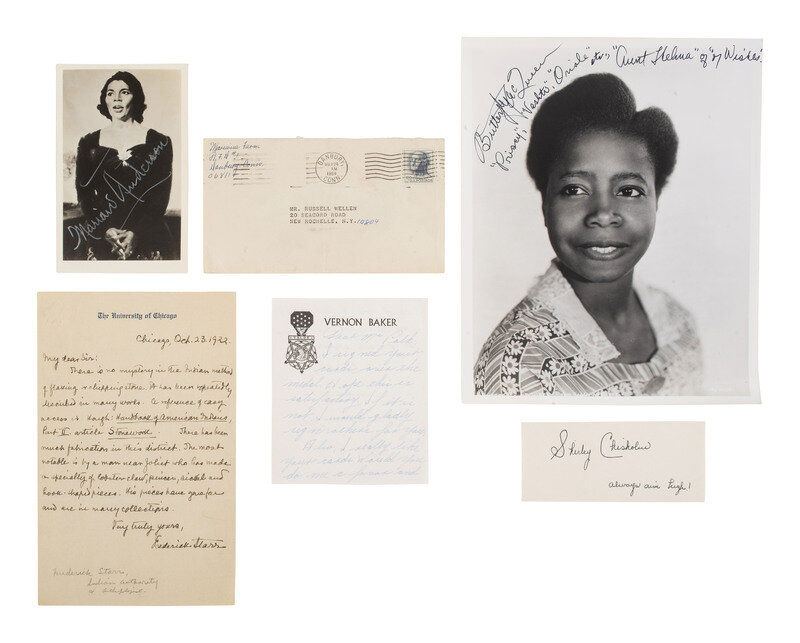 Marian Anderson
Marian
R.F.D. #
Danbury, Conn.
06811
DANBURY
CONN.
MR. RUSSELL WELLEN
20 SEACORD ROAD
NEW ROCHELLE, N.Y. 10804
Butterfly McQueen
"Prissy", "Vashti", "Oriole" etc, "Aunt Thelma" of "Wishes"
The University of Chicago
Chicago, Oct. 23. 1922
My dear Sir:
There is no mystery in the Indian method
of flaking or chipping stone. It has been repeatedly
described in many works. A reference of easy
access is Hough: Handbook of American Indians,
Part II. article Stonework. There has been
much fabrication in this district. The most
notable is by a man near Joliet who has made
a specialty of lobster claw, pincer, sickel and
hook-shaped pieces. His pieces have gone far
and are in many collections.
Very truly yours,
Frederick Starr
Frederick Starr,
Indian authority
VERNON BAKER
Dear
I signed your
cards
satisfactory. If it is
not I would gladly
sign others for you.
Also, I really like
your cards. Would you
do me a favor and
Shirley Chisholm
always aim high!